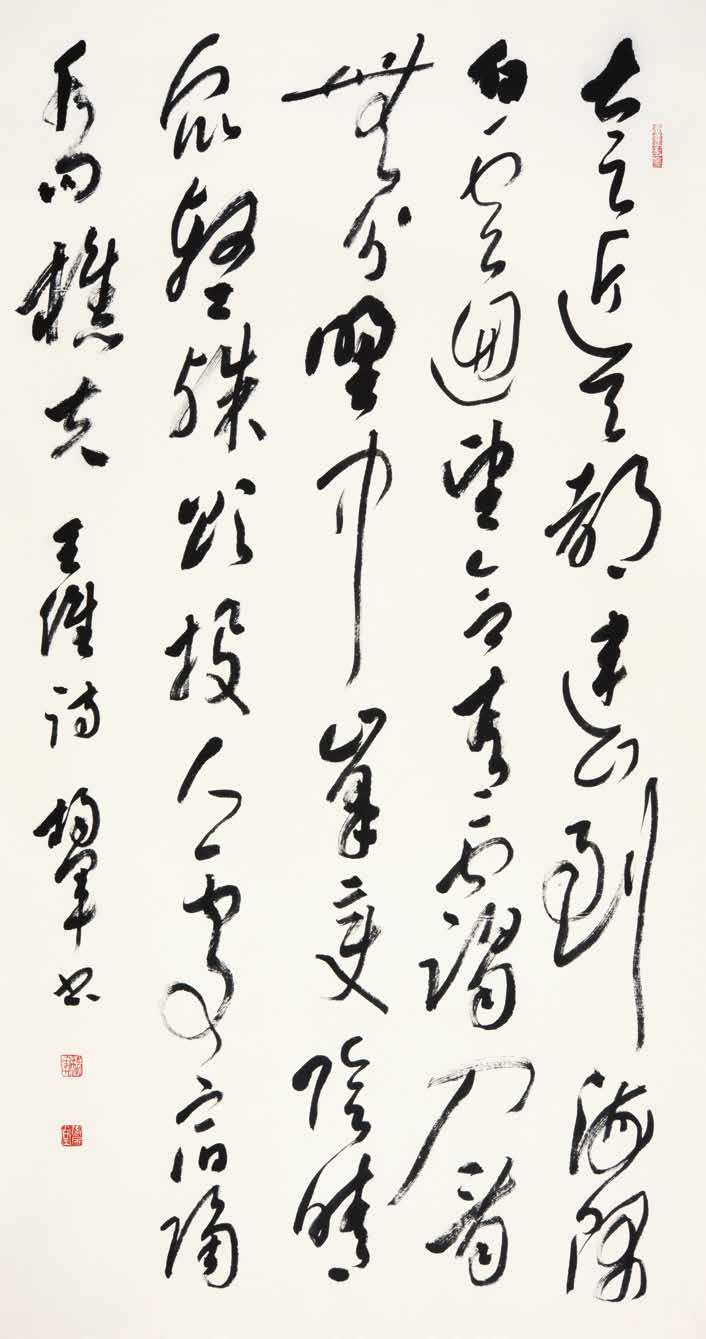 太乙近天都連山到海隅
白雲迴望合青靄入看
無分野中峯變陰晴
眾壑殊欲投人處宿隔
水問樵夫 王維詩 楊軍书